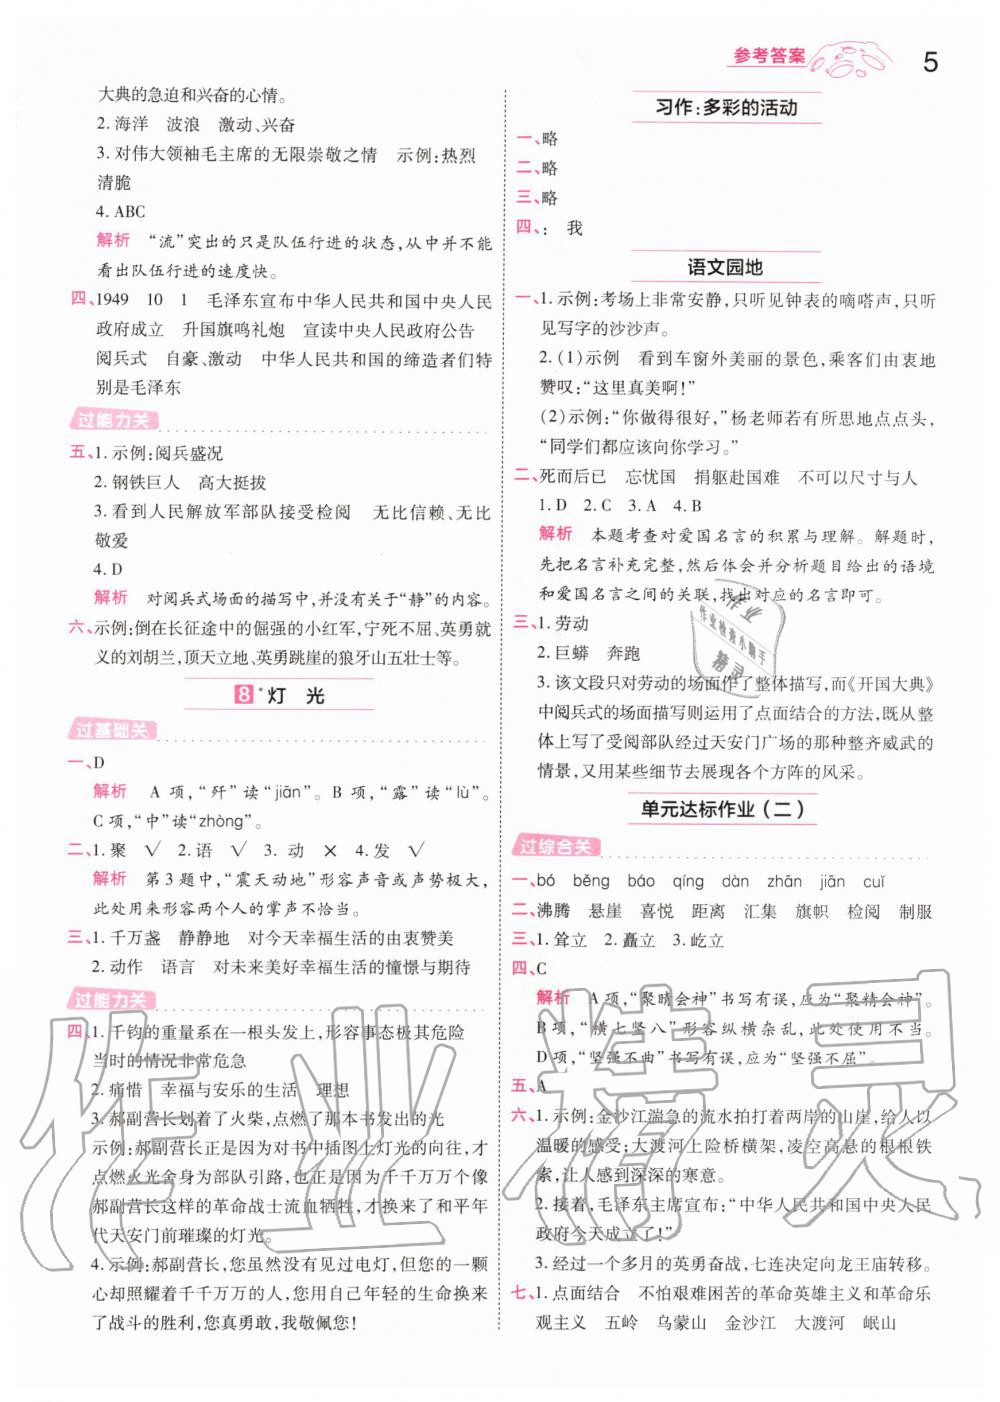 参考答案
5
大典的急迫和兴奋的心情。
2. 海洋 波浪 激动、兴奋
3. 对伟大领袖毛主席的无限崇敬之情 示例:热烈
清脆
4. ABC
解析 “流”突出的只是队伍行进的状态,从中并不能
看出队伍行进的速度快。
四、1949 10 1 毛泽东宣布中华人民共和国中央人民
政府成立 升国旗鸣礼炮 宣读中央人民政府公告
阅兵式 自豪、激动 中华人民共和国的缔造者们特
别是毛泽东
过能力关
五、1. 示例:阅兵盛况
2. 钢铁巨人 高大挺拔
3. 看到人民解放军部队接受检阅 无比信赖、无比
敬爱
4. D
解析 对阅兵式场面的描写中,并没有关于“静”的内容。
六、示例:倒在长征途中的倔强的小红军,宁死不屈、英勇就
义的刘胡兰,顶天立地、英勇跳崖的狼牙山五壮士等。
8*灯 光
过基础关
一、D
解析 A 项,“歼”读“jiān”。B 项,“露”读“lù”。
C 项,“中”读“zhòng”。
二、1. 聚 √ 2. 语 √ 3. 动 × 4. 发 √
解析 第 3 题中,“震天动地”形容声音或声势极大,
此处用来形容两个人的掌声不恰当。
三、1. 千万盏 静静地 对今天幸福生活的由衷赞美
2. 动作 语言 对未来美好幸福生活的憧憬与期待
过能力关
四、1. 千钧的重量系在一根头发上,形容事态极其危险
当时的情况非常危急
2. 痛惜 幸福与安乐的生活 理想
3. 郝副营长划着了火柴,点燃了那本书发出的光
示例:郝副营长正是因为对书中插图上灯光的向往,才
点燃火光舍身为部队引路,正是因为千千万万个像
郝副营长这样的革命战士流血牺牲,才换来了和平年
代天安门前璀璨的灯光。
4. 示例:郝副营长,您虽然没有见过电灯,但您的一颗
心却照耀着千千万万的人,您用自己年轻的生命换来
了战斗的胜利,您真勇敢,我敬佩您!
习作:多彩的活动
一、略
二、略
三、略
四、: 我
语文园地
一、1. 示例:考场上非常安静,只听见钟表的嘀嗒声,只听
见写字的沙沙声。
2. (1)示例 看到车窗外美丽的景色,乘客们由衷地
赞叹:“这里真美啊!”
(2)示例:“你做得很好,”杨老师若有所思地点点头,
“同学们都应该向你学习。”
二、死而后已 忘忧国 捐躯赴国难 不可以尺寸与人
1. D 2. C 3. A 4. B
解析 本题考查对爱国名言的积累与理解。解题时,
先把名言补充完整,然后体会并分析题目给出的语境
和爱国名言之间的关联,找出对应的名言即可。
三、1. 劳动
2. 巨蟒 奔跑
3. 该文段只对劳动的场面作了整体描写,而《开国大典》
中阅兵式的场面描写则运用了点面结合的方法,既从整
体上写了受阅部队经过天安门广场的那种整齐威武的
情景,又用某些细节去展现各个方阵的风采。
单元达标作业(二)
过综合关
一、bó běng báo qíng dàn zhān jiān cuǐ
二、沸腾 悬崖 喜悦 距离 汇集 旗帜 检阅 制服
三、1. 耸立 2. 矗立 3. 屹立
四、C
解析 A 项,“聚睛会神”书写有误,应为“聚精会神”。
B 项,“横七竖八”形容纵横杂乱,此处使用不当。
D 项,“坚强不曲”书写有误,应为“坚强不屈”。
五、A
六、1. 示例:金沙江湍急的流水拍打着两岸的山崖,给人以
温暖的感受;大渡河上险桥横架,凌空高悬的根根铁
索,让人感到深深的寒意。
2. 接着,毛泽东主席宣布:“中华人民共和国中央人民
政府今天成立了!”
3. 经过一个多月的英勇奋战,七连决定向龙王庙转移。
七、1. 点面结合 不怕艰难困苦的革命英雄主义和革命乐
观主义 五岭 乌蒙山 金沙江 大渡河 岷山
作业
作业检查小助手
精灵
作业精灵